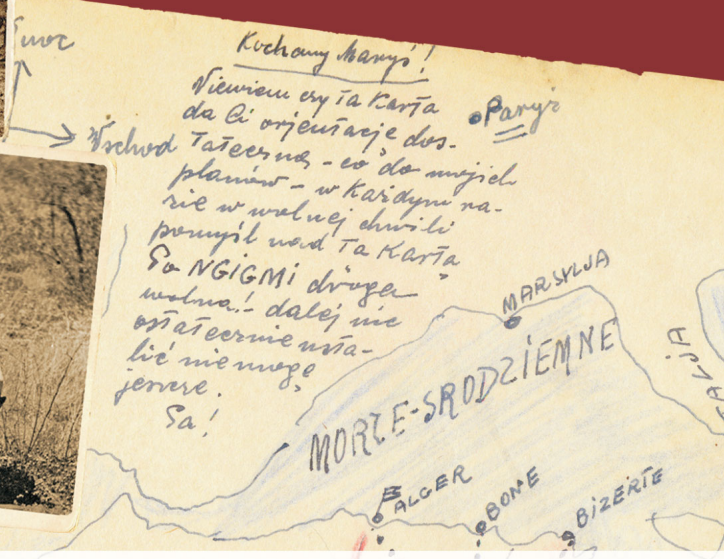 Kochany Maryś!
Niewiem czy ta Karta
da Ci orjentację dos-
Tateczną - co do mojich
planów - w Każdym ra-
zie w wolnej chwili
pomyśl nad Tą Kartą
Po NGIGMI droga
wolna! - dalej nic
ostatecznie usta-
lić nie mogę
jeszcze.
Pa!
Wschod
Paryż
MARSYLJA
MORZE-SRODZIEMNE
ALGER
BONE
BIZERTE